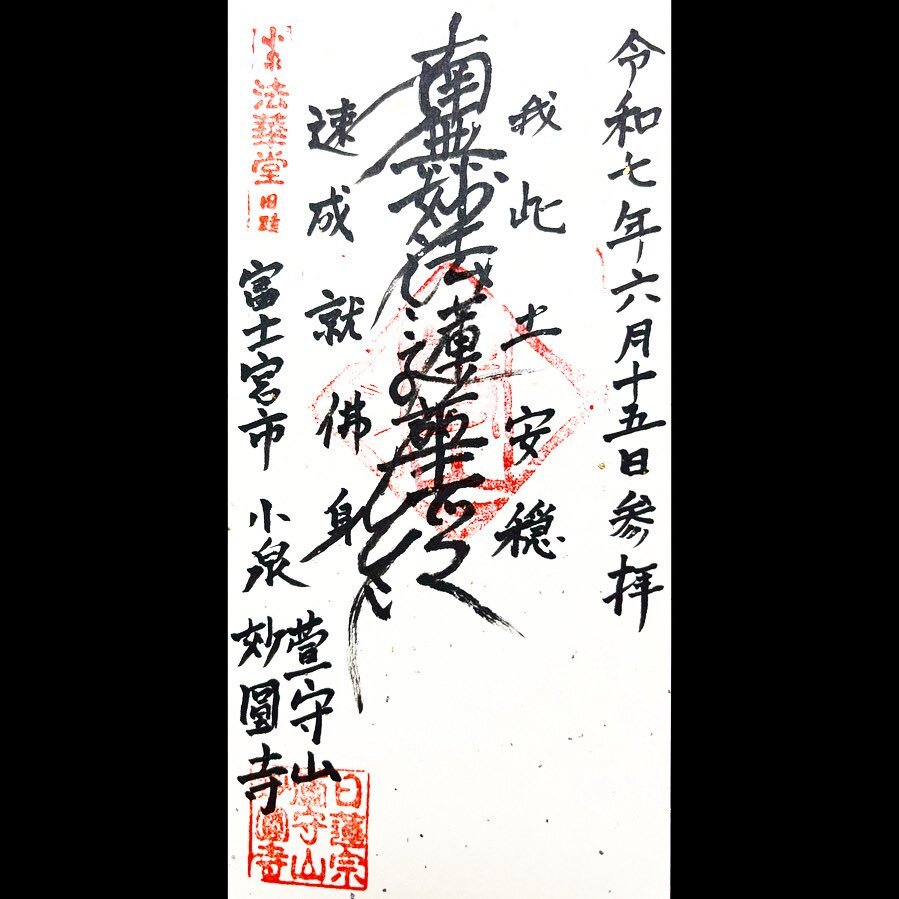 令和七年六月十五日参拝
我此土安穏
南無妙法蓮華経
速成就佛身
小泉法華堂旧跡
富士宮市 小泉
萱守山
妙圓寺
日蓮宗
萱守山
妙圓寺